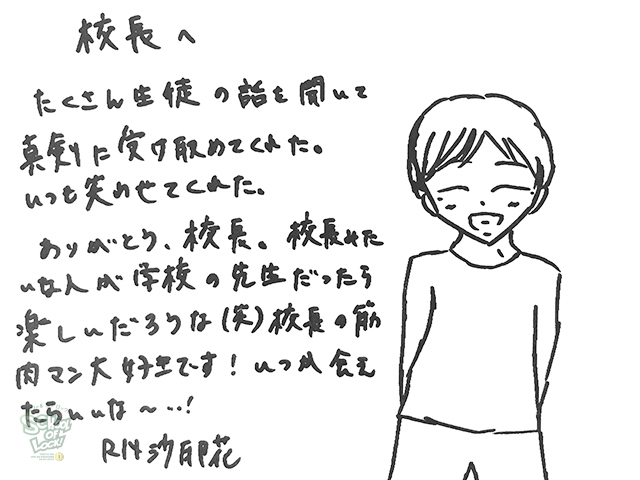 校長へ
たくさん生徒の話を聞いて
真剣に受け取めてくれた。
いつも笑わせてくれた。
ありがとう、校長。校長みた
いな人が学校の先生だったら
楽しいだろうな(笑)校長の筋
肉マン大好きです!いつか会え
たらいいな〜…!
RN沙耶花
SCHOOL OF LOCK!